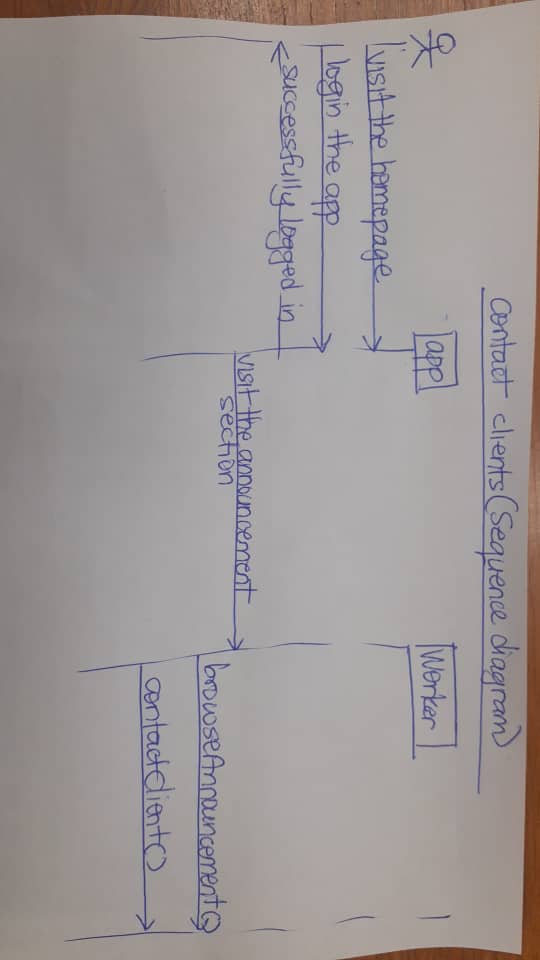 contact clients (sequence diagram)
app
Worker
visit the homepage
login the app
successfully logged in
visit the announcement
section
browseAnnouncement()
contactClient()